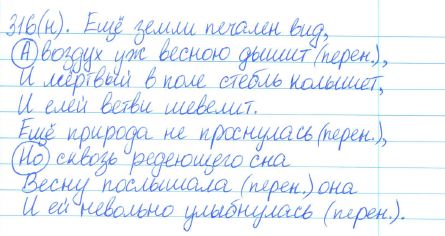 316(н). Ещё земли печален вид,
А воздух уж весною дышит (перен.),
И мёртвый в поле стебль колышет,
И елей ветви шевелит.
Ещё природа не проснулась (перен.),
Но сквозь редеющего сна
Весну послышала (перен.) она
И ей невольно улыбнулась (перен.).